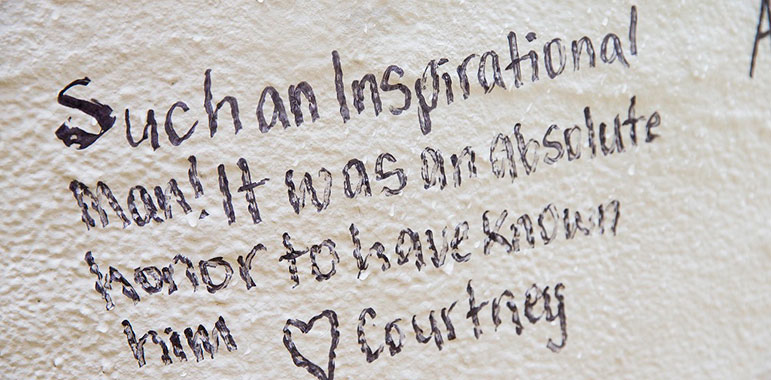 Such an Inspirational
Man! It was an absolute
honor to have known
him ♡ Courtney
A